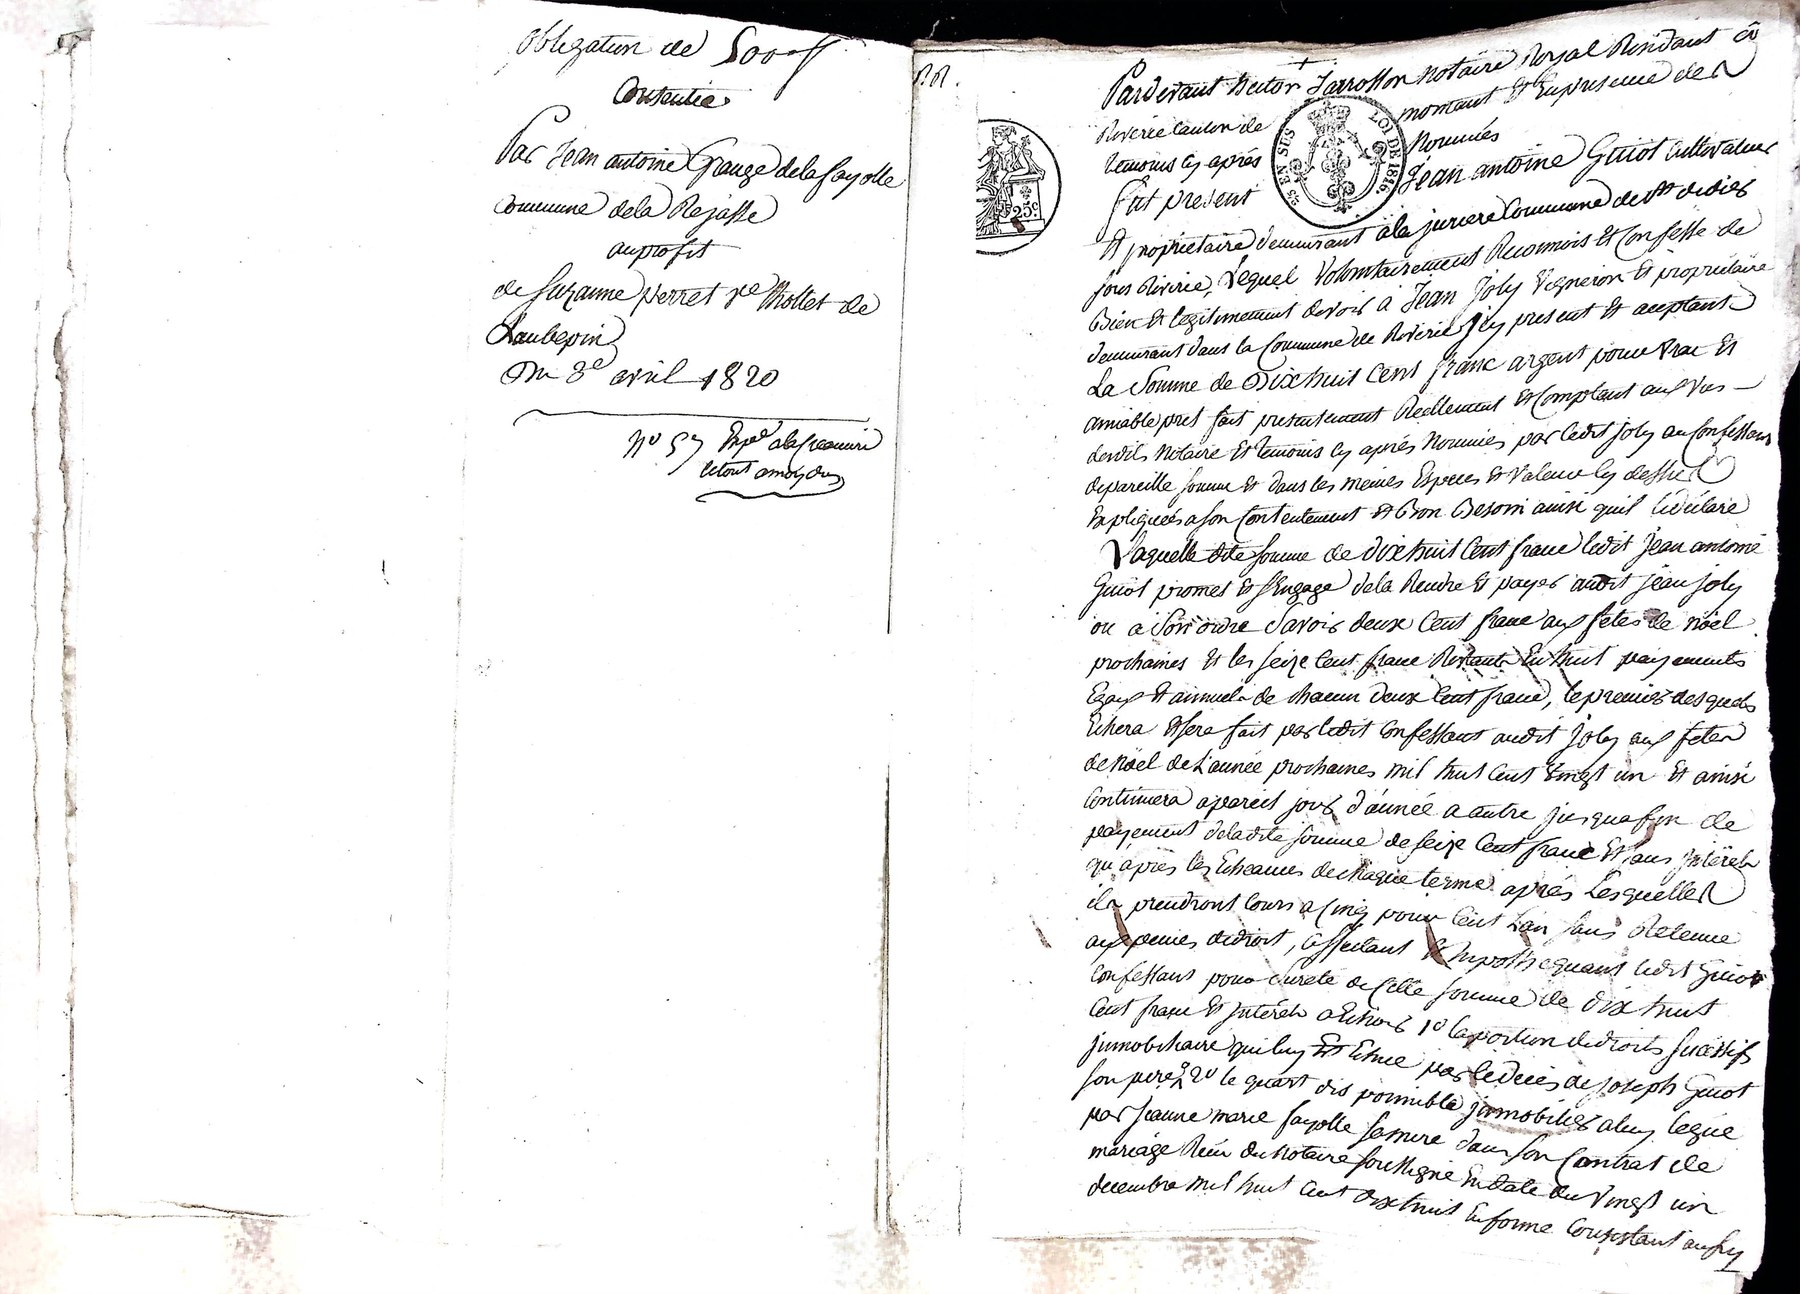 Obligation de 500 ff
Consentie
Par Jean antoine Grange de la fayolle
Commune de la Rejasse
au profit
de Suzanne perret ve Mollet de
Laubepin
Du 8e avril 1820
No 57 Expée a la
R.R.
Pardevant hector Jarrosson notaire Royal Residant a
Riverie Canton de mornant Et En presence des
temoins Cy après Nommés
fut present Jean antoine Guiot Cultivateur
25 EN SUS
LOI DE 1816.
25c
Et propriétaire demeurant a la juriere Commune de st didier
sous Riverie, Lequel Volontairement Reconnois Et Confesse de
Bien Et legitimement devoir à Jean Joly Vigneron Et propriétaire
demeurant dans la Commune de Riverie Icy present Et aceptant
La Somme de Dixhuit Cent franc argent pour Vrai Et
amiable pret fait presentement Reellement Et Comptant aux Vus
desdits Notaire Et temoins Cy après Nommés par ledit joly au Confessant
de pareille somme Et dans les mêmes Especes Et Valeur Cy dessus
Expliquées a son Contentement Et Bon Besoin ainsi quil le déclare
Laquelle dite somme de dixhuit Cent franc ledit Jean antoine
Guiot promet Et s'Engage de la Rendre Et payer audit jean joly
ou a Son ordre Savoir deux Cent franc aux fetes de Noël
prochaines Et les seize Cent franc Restants En huit payements
Egaux Et annuels de chacun deux Cent franc, le premier desquels
Echera Et sera fait par ledit Confessant audit joly aux fetes
de Noël de L'année prochaines mil huit Cent Vingt un Et ainsi
Continuera a pareil jour d'année a autre jusqua fin de
payement de la dite somme de seize Cent franc Et sans intérêts
qu'après les Echeances de chaque terme après Lesquelles
ils prendront Cours a Cinq pour Cent L'an sans Retenue
aux peines de droit, affectant Et hypothequant ledit Guiot
Confessant pour sureté de Cette somme de dix huit
Cent franc Et intérêts a Echoir 1o la portion de droits successifs
jmmobiliaire qui luy Est Echue par le deces de joseph Guiot
son pere 2o le quart disponnible jmmobilier a luy légué
par jeanne marie fayolle sa mere dans son Contrat de
mariage Recu du Notaire soussigné En date du Vingt un
decembre mil huit Cent dixhuit En forme Consistant au